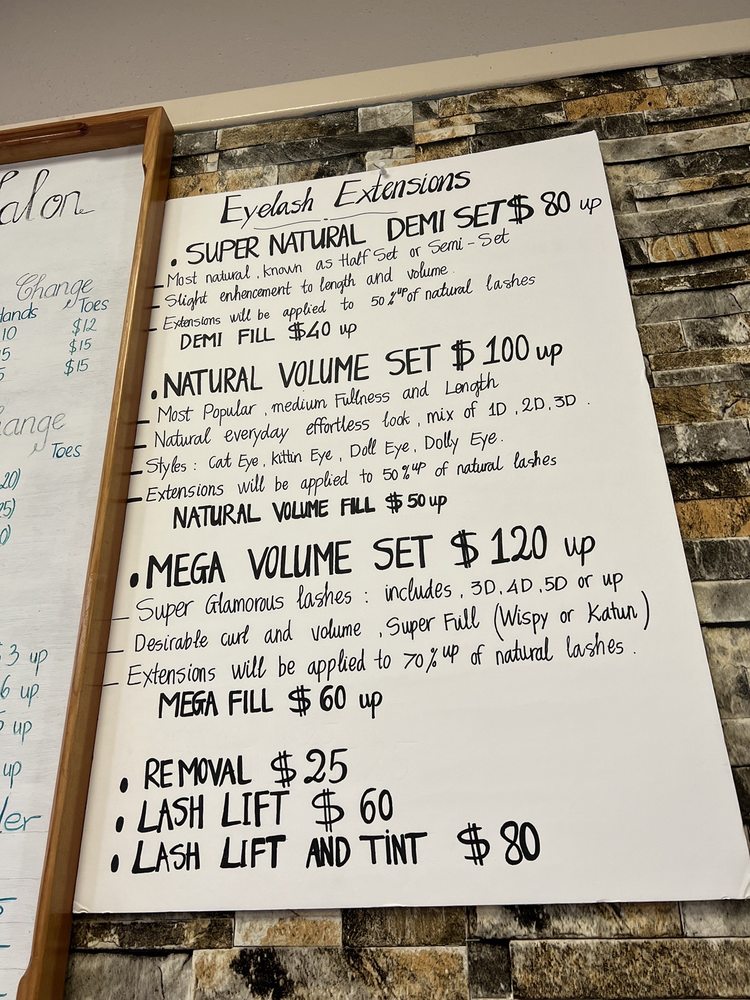 alon
Change
Hands Toes
10 $12
5 $15
5 $15
ange
Toes
20)
25)
0)
$3 up
6 up
5 up
up
ler
Eyelash Extensions
• SUPER NATURAL DEMI SET $ 80 up
- Most natural, known as Half Set or Semi-Set
- Slight enhencement to length and volume.
- Extensions will be applied to 50%up of natural lashes
DEMI FILL $40 up
• NATURAL VOLUME SET $ 100 up
- Most Popular, medium Fullness and Length
- Natural everyday effortless look, mix of 1D, 2D, 3D.
- Styles: Cat Eye, Kittin Eye, Doll Eye, Dolly Eye.
- Extensions will be applied to 50%up of natural lashes
NATURAL VOLUME FILL $ 50 up
• MEGA VOLUME SET $ 120 up
- Super Glamorous lashes: includes, 3D, 4D, 5D or up
- Desirable curl and volume, Super Full (Wispy or Katun)
- Extensions will be applied to 70%up of natural lashes.
MEGA FILL $ 60 up
• REMOVAL $ 25
• LASH LIFT $ 60
• LASH LIFT AND TINT $ 80